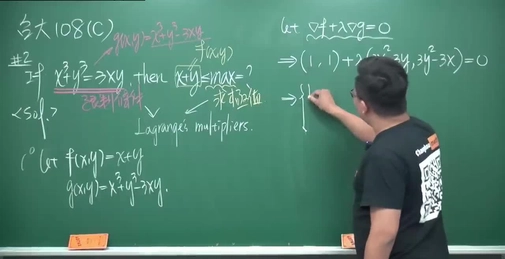 台大108(C)
g(x,y)=x³+y³-3xy
f(x,y)
#2
If x³+y³=3xy, then x+y≤max=?
求極值
<Sol.>
Lagrange's multipliers.
1° let f(x,y)=x+y
g(x,y)=x³+y³-3xy.
let ∇f+λ∇g=0
⇒(1,1)+λ(x²-3y,3y²-3x)=0
⇒{1